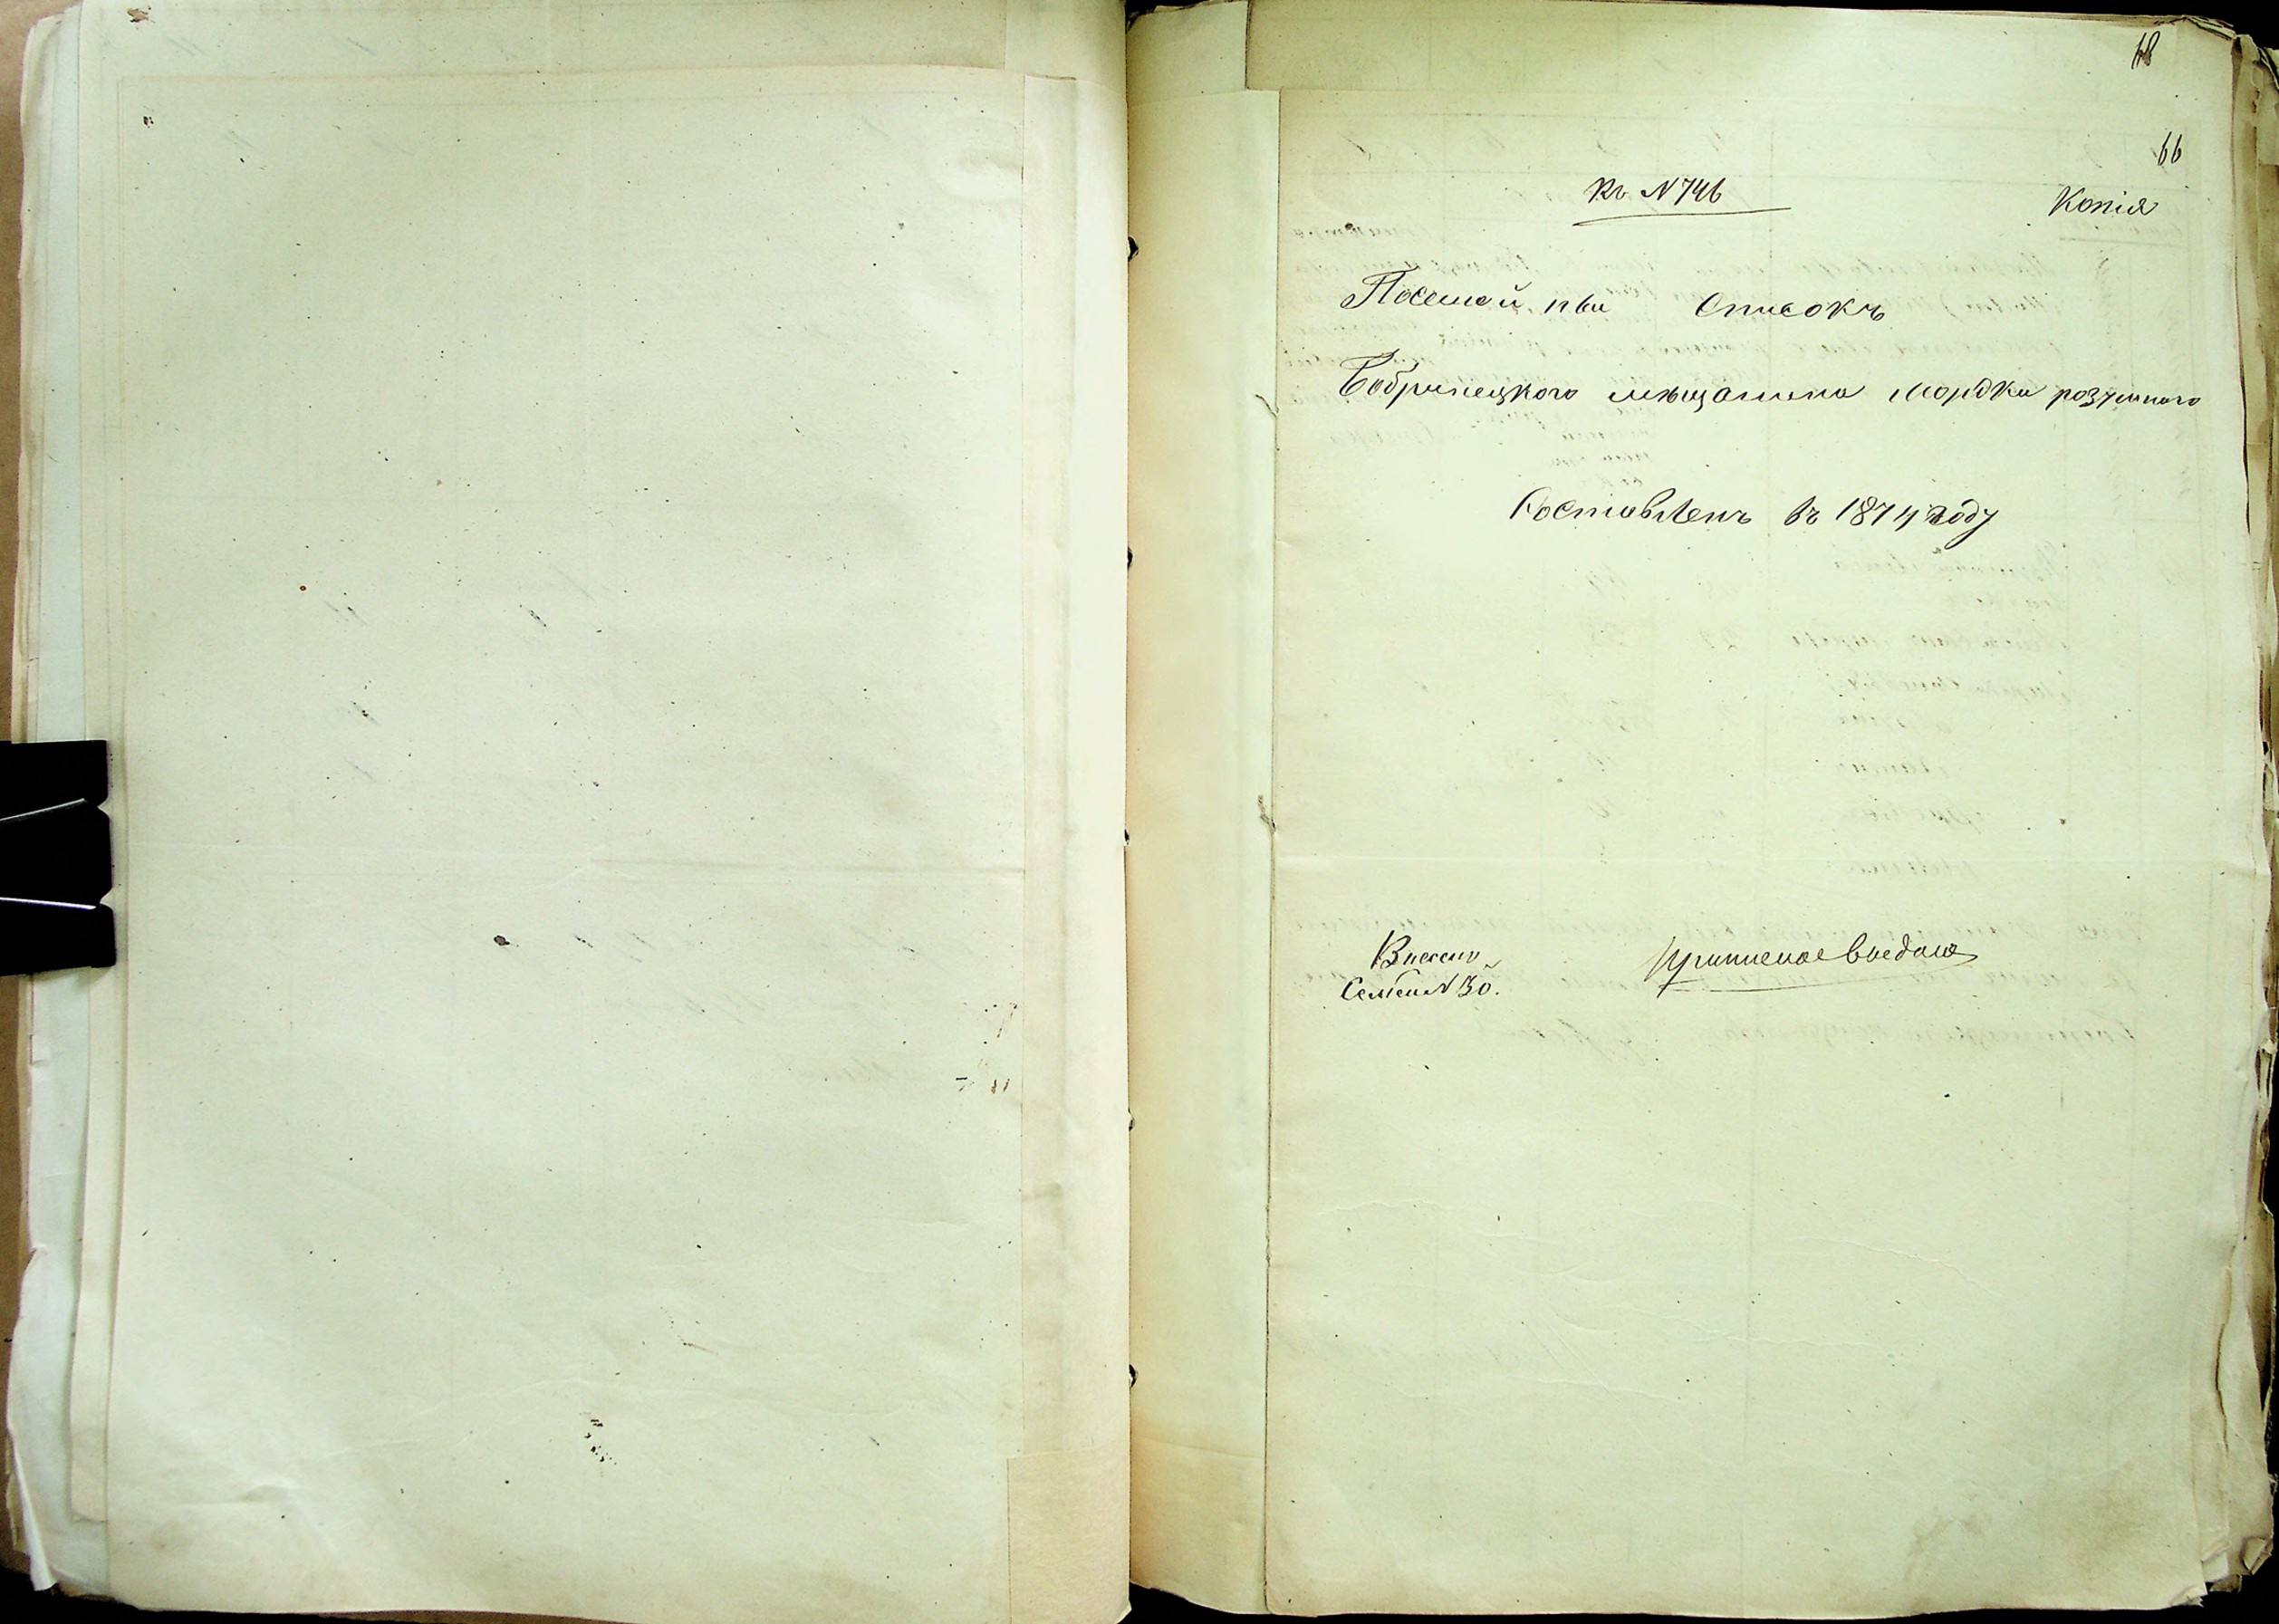 68
66
Къ N 746
Копія
Посемейный Списокъ
Бобринецкого мѣщанина Мордки розумного
Составленъ въ 1874 году
Внесено
Семей N 30.